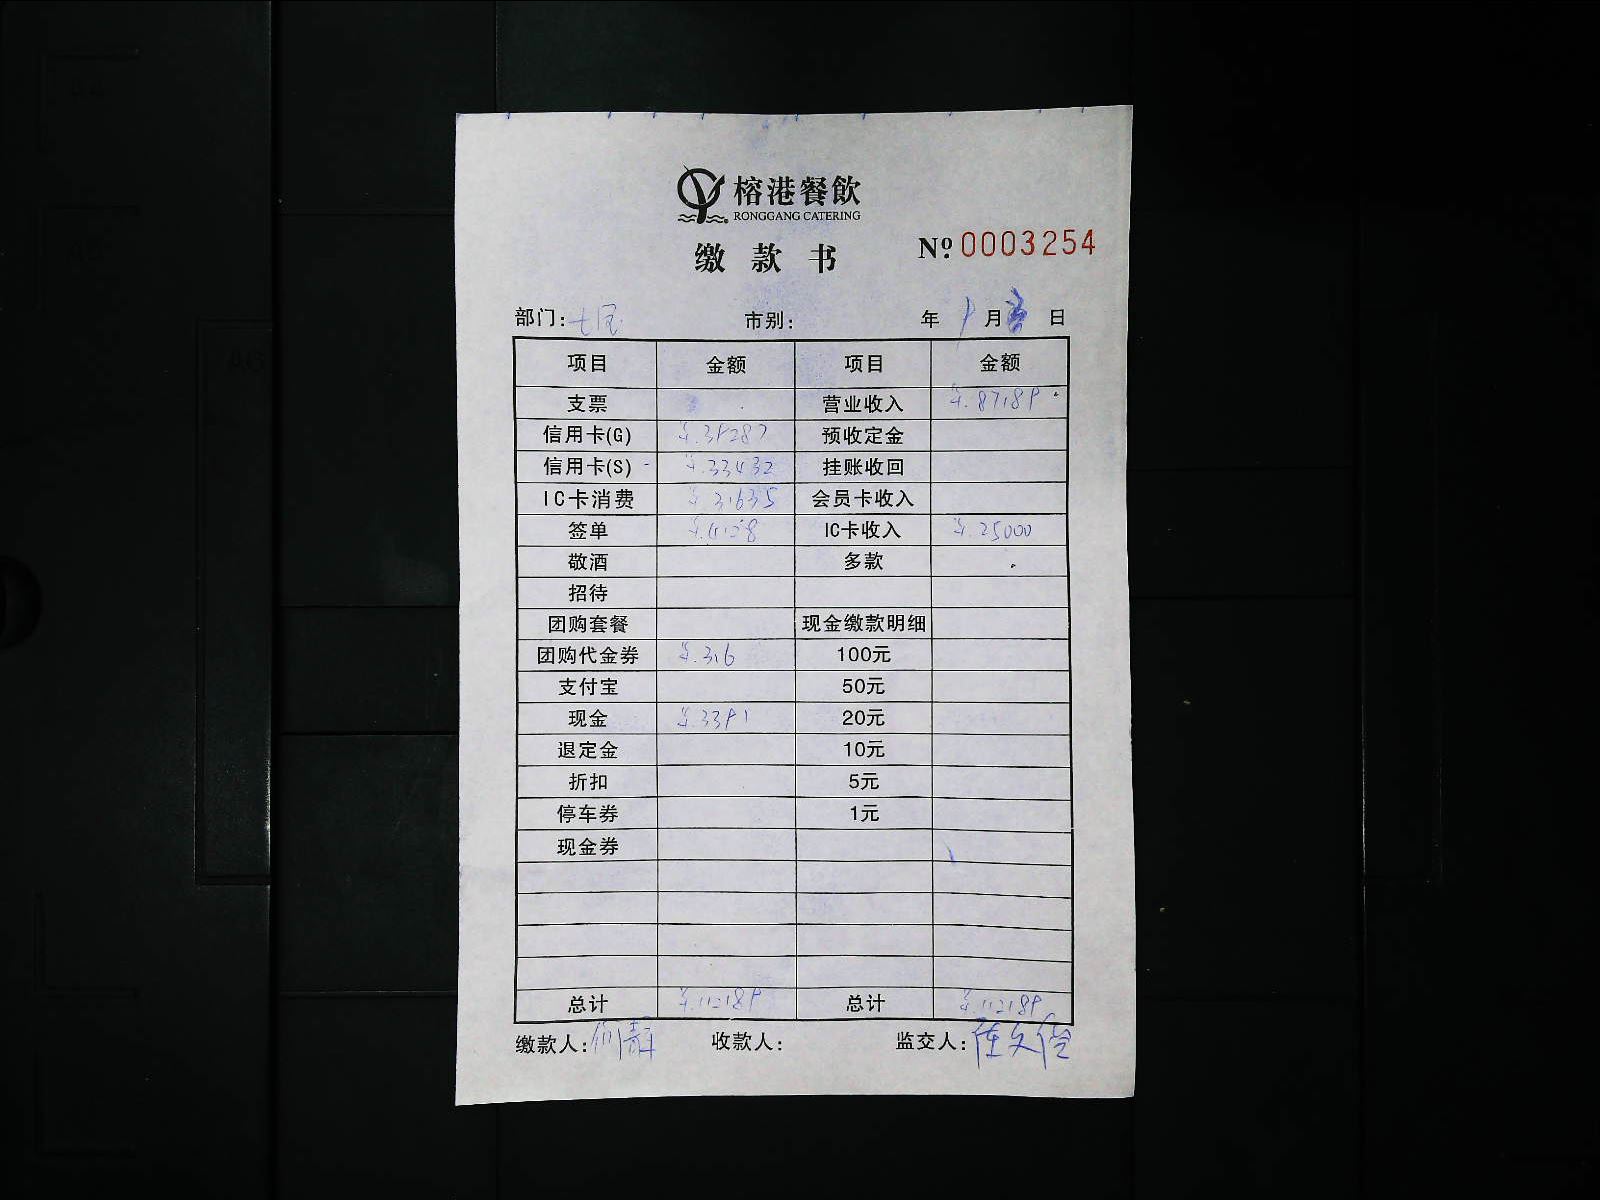 榕港餐飲
RONGGANG CATERING
缴款书 № 0003254
部门: 市别: 年 9 月 日
项目 金额 项目 金额
支票 营业收入 ¥.87189
信用卡(G) ¥.39287 预收定金
信用卡(S) ¥.33432 挂账收回
IC卡消费 ¥.31635 会员卡收入
签单 ¥.4128 IC卡收入 ¥.25000
敬酒 多款
招待
团购套餐 现金缴款明细
团购代金券 ¥.316 100元
支付宝 50元
现金 ¥.3391 20元
退定金 10元
折扣 5元
停车券 1元
现金券
总计 ¥.112189 总计 ¥.112189
缴款人: 收款人: 监交人: